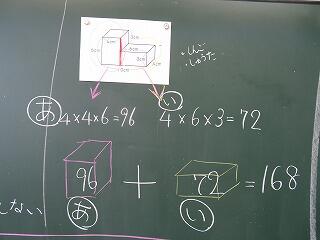 4cm
6cm
3cm
・しんご
・しゅうた
あ 4×4×6=96
い 4×6×3=72
96 + 72 =168
あ
い
しない